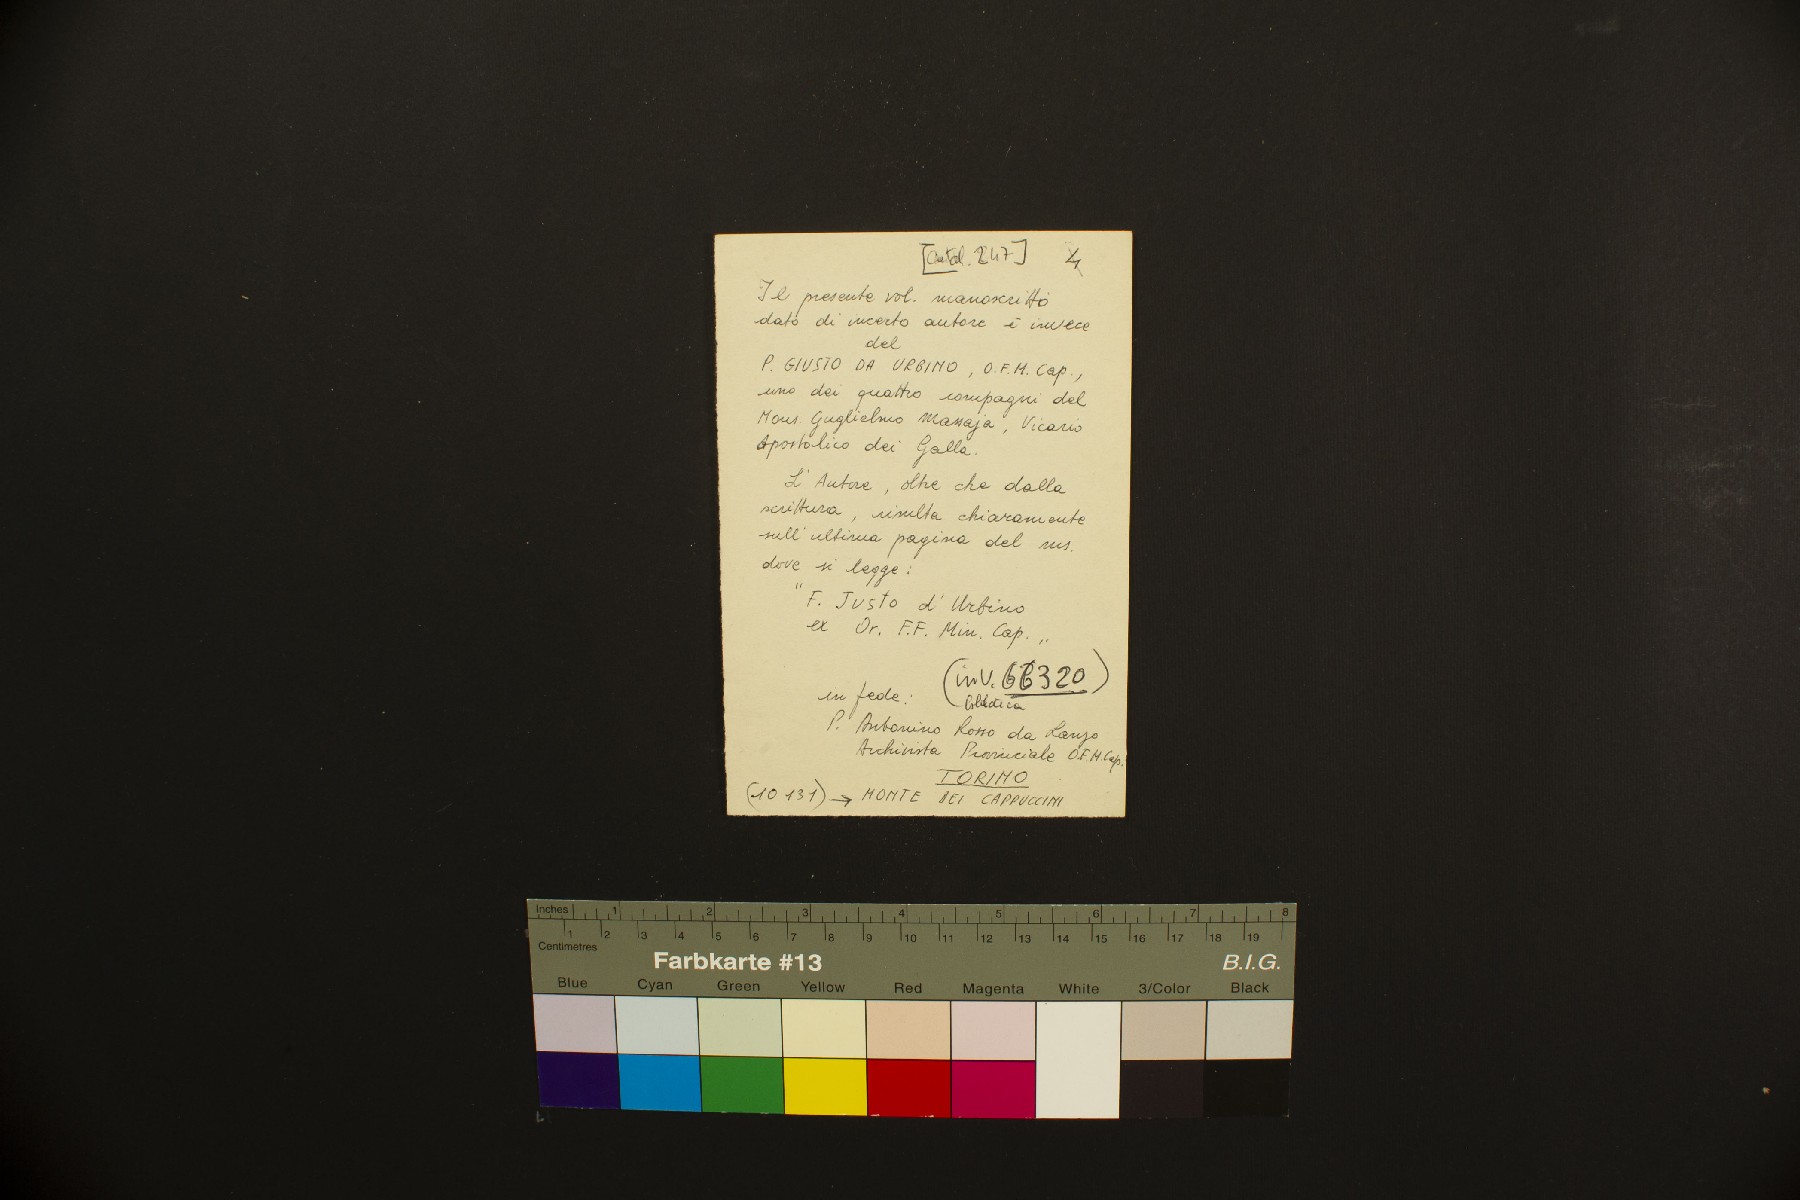 [Catal. 247] 4
Il presente vol. manoscritto
dato di incerto autore è invece
del
P. GIUSTO DA URBINO, O.F.M. Cap.,
uno dei quattro compagni del
Mons Guglielmo Massaja, Vicario
Apostolico dei Galla.
L'Autore, oltre che dalla
scrittura, risulta chiaramente
sull'ultima pagina del ms.
dove si legge:
"F. Justo d'Urbino
ex Or. F.F. Min. Cap. „
(inv. 66320)
in fede:
P. Antonino Rosso da Lanzo
Archivista Provinciale O.F.M. Cap.
TORINO
(10 131) → MONTE DEI CAPPUCCINI
Inches 1 2 3 4 5 6 7 8
1 2 3 4 5 6 7 8 9 10 11 12 13 14 15 16 17 18 19
Centimetres
Farbkarte #13 B.I.G.
Blue Cyan Green Yellow Red Magenta White 3/Color Black